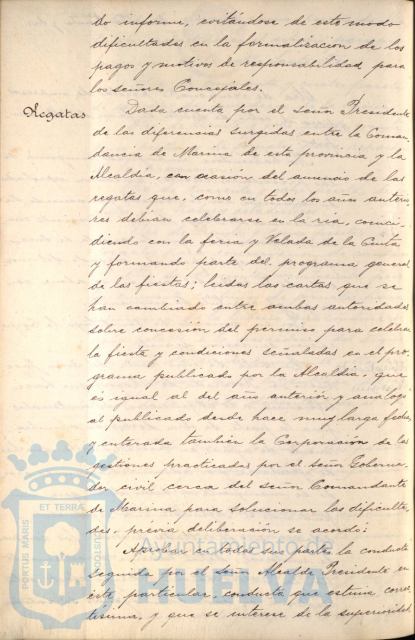 do informe, evitándose de este modo
dificultades en la formalizacion de los
pagos y motivos de responsabilidad para
los señores Concejales.
Regatas
Dada cuenta por el señor Presidente
de las diferencias surgidas entre la Coman-
dancia de Marina de esta provincia y la
Alcaldía, con ocasión del anuncio de las
regatas que, como en todos los años anterio-
res debian celebrarse en la ria, coinci-
diendo con la feria y Velada de la Cinta
y formando parte del programa general
de las fiestas; leidas las cartas que se
han cambiado entre ambas autoridades
sobre concesión del permiso para celebrar
la fiesta y condiciones señaladas en el pro-
grama publicado por la Alcaldia, que
es igual al del año anterior y analogo
al publicado desde hace muy larga fecha,
y enterada tambien la Corporación de las
gestiones practicadas por el señor Goberna-
dor civil cerca del señor Comandante
de Marina para solucionar las dificulta-
des, previa deliberación se acordó:
Aprobar en todas sus partes la conducta
seguida por el señor Alcalde Presidente en
este particular, conducta que estima correc-
tisima, y que se interese de la superioridad
PORTUS MARIS
ET TERRÆ
CUSTODIA
Ayuntamiento de
HUELVA